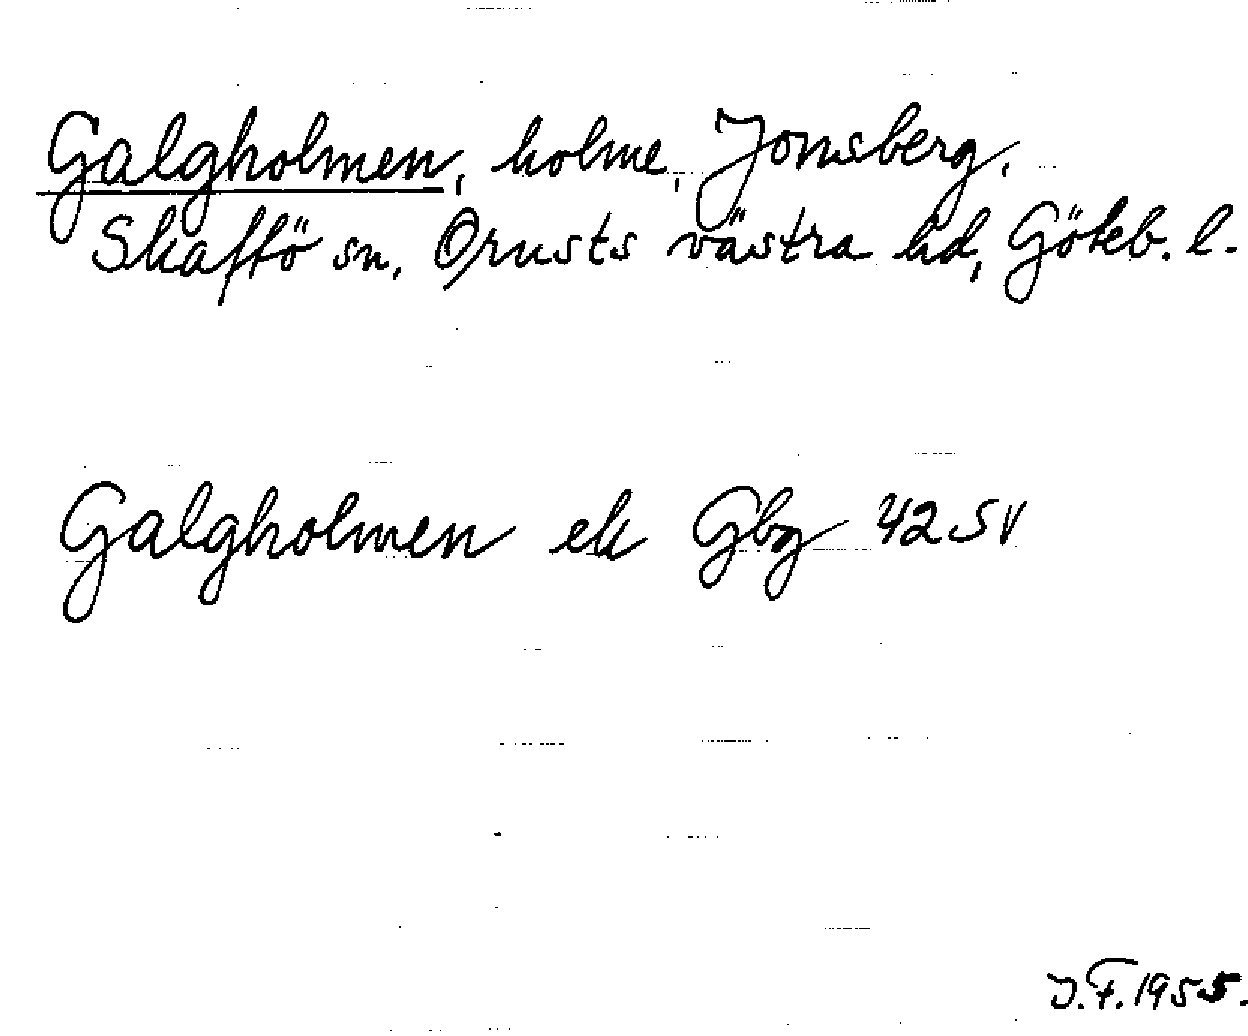 Galgholmen, holme, Jonsberg,
Skaftö sn, Orusts västra hd, Göteb. l.
Galgholmen ek Gbg 42 SV
J.F. 1955.